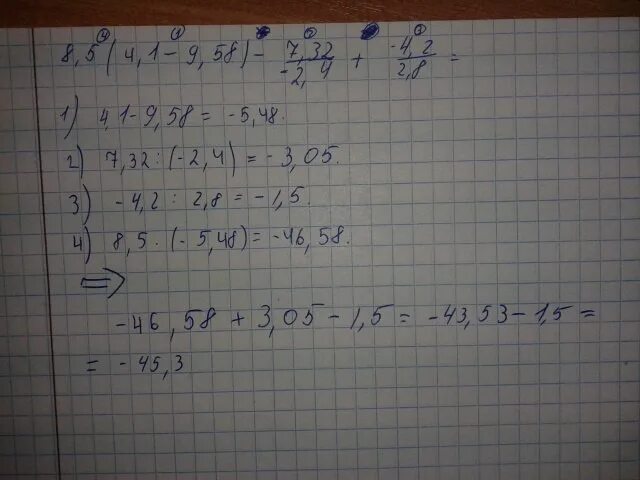 8,5(4,1-9,58)- 7,32/-2,4 + -4,2/2,8 =
1) 4,1-9,58 = -5,48.
2) 7,32 : (-2,4) = -3,05.
3) -4,2 : 2,8 = -1,5.
4) 8,5 · (-5,48) = -46,58.
⇒
-46,58 + 3,05 - 1,5 = -43,53 - 1,5 =
= -45,3